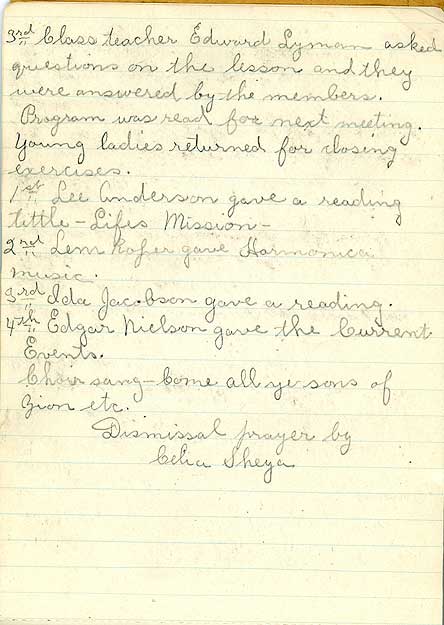 3rd Class teacher Edward Lyman asked
questions on the lesson and they
were answered by the members.
Program was read for next meeting.
Young ladies returned for closing
exercises.
1st Lee Anderson gave a reading
tittle - Lifes Mission -
2nd Lem gave Harmonica
music.
3rd Ida Jacobson gave a reading.
4th Edgar Nielson gave the Current
Events.
Choir sang - Come all ye sons of
Zion etc.
Dismissal prayer by
Celia Sheya